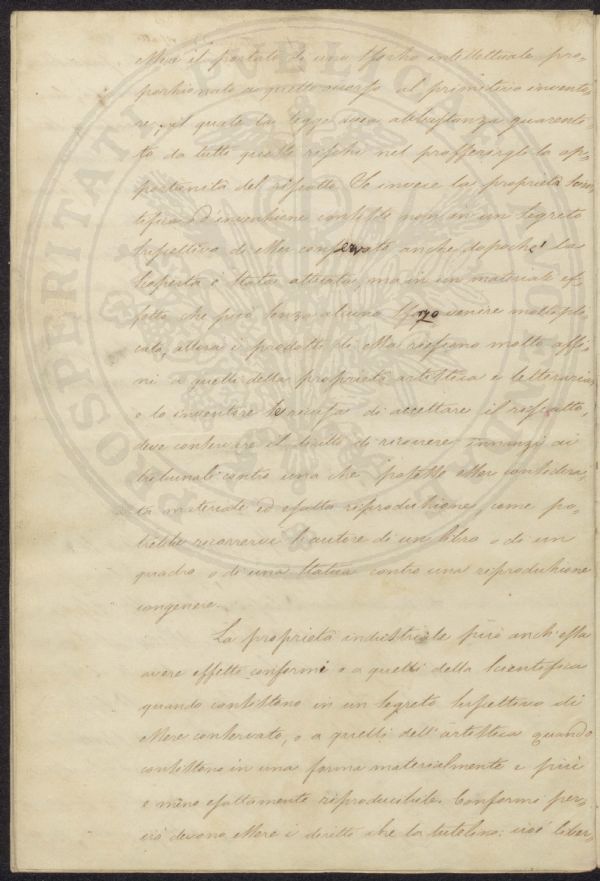 esser il portato di uno sforzo intellettuale pro-
porzionato a quello occorso al primitivo invento-
re, il quale la legge avea abbastanza guarenti-
to da tutti quelli rischi nel profferirgli la op-
portunità del riscatto. Se invece la proprietà scien-
tifica ed invenzione consiste non in un segreto
suscettivo di esser conservato anche dopochè la
scoperta è stata attivata, ma in un materiale ef-
fetto che può senza alcuno sforzo venire moltipli-
cato, allora i prodotti di essa restano molto affi-
ni a quelli della proprietà artistica e letteraria
e lo inventore se ricusa di accettare il riscatto,
deve conservare il diritto di ricorrere innanzi ai
tribunali contro una che potesse esser considera-
ta materiale ed esatta riproduzione, come po-
trebbe ricorrervi l'autore di un libro o di un
quadro o di una statua contro una riproduzione
congenere.
La proprietà industriale può anch'essa
avere effetti conformi o a quelli della scientifica
quando consistono in un segreto suscettivo di
essere conservato, o a quelli dell'artistica quando
consistono in una forma materialmente e più
e meno esattamente riproducibile. Conformi per-
ciò devono essere i diritti che la tutelino: cioè liber-